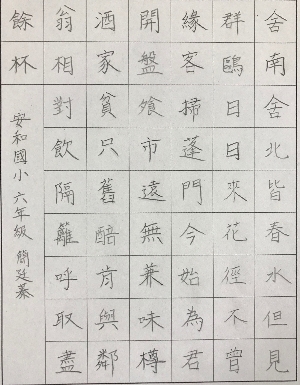 舍南舍北皆春水但見
群鷗日日來花徑不曾
緣客掃蓬門今始為君
開盤飧市遠無兼味樽
酒家貧只舊醅肯與鄰
翁相對飲隔籬呼取盡
餘杯
安和國小 六年級 簡廷蓁